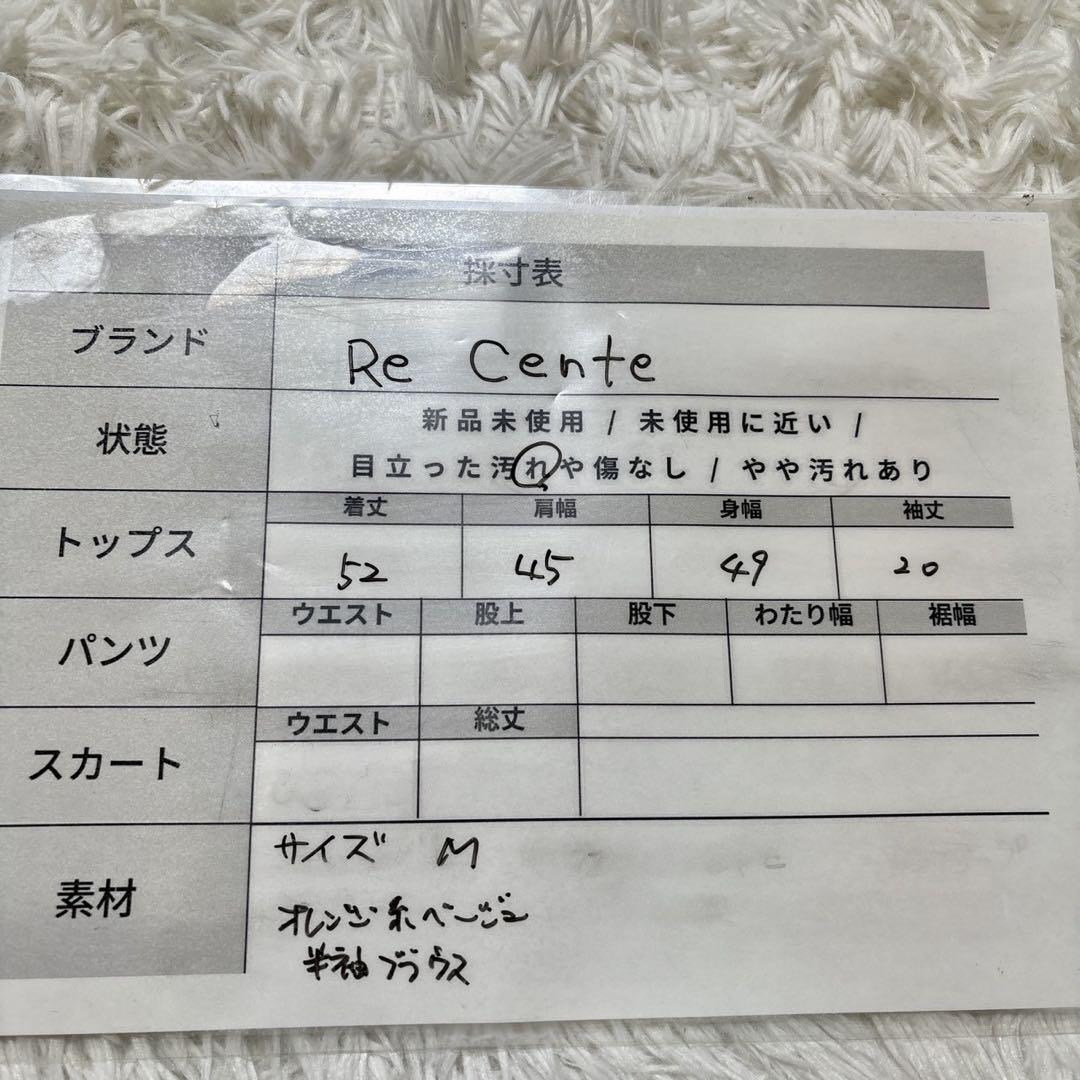 採寸表
ブランド
Re Cente
状態
新品未使用 / 未使用に近い /
目立った汚れや傷なし / やや汚れあり
トップス
着丈 肩幅 身幅 袖丈
52 45 49 20
パンツ
ウエスト 股上 股下 わたり幅 裾幅
スカート
ウエスト 総丈
素材
サイズ M
オレンジ系ベージュ
半袖ブラウス